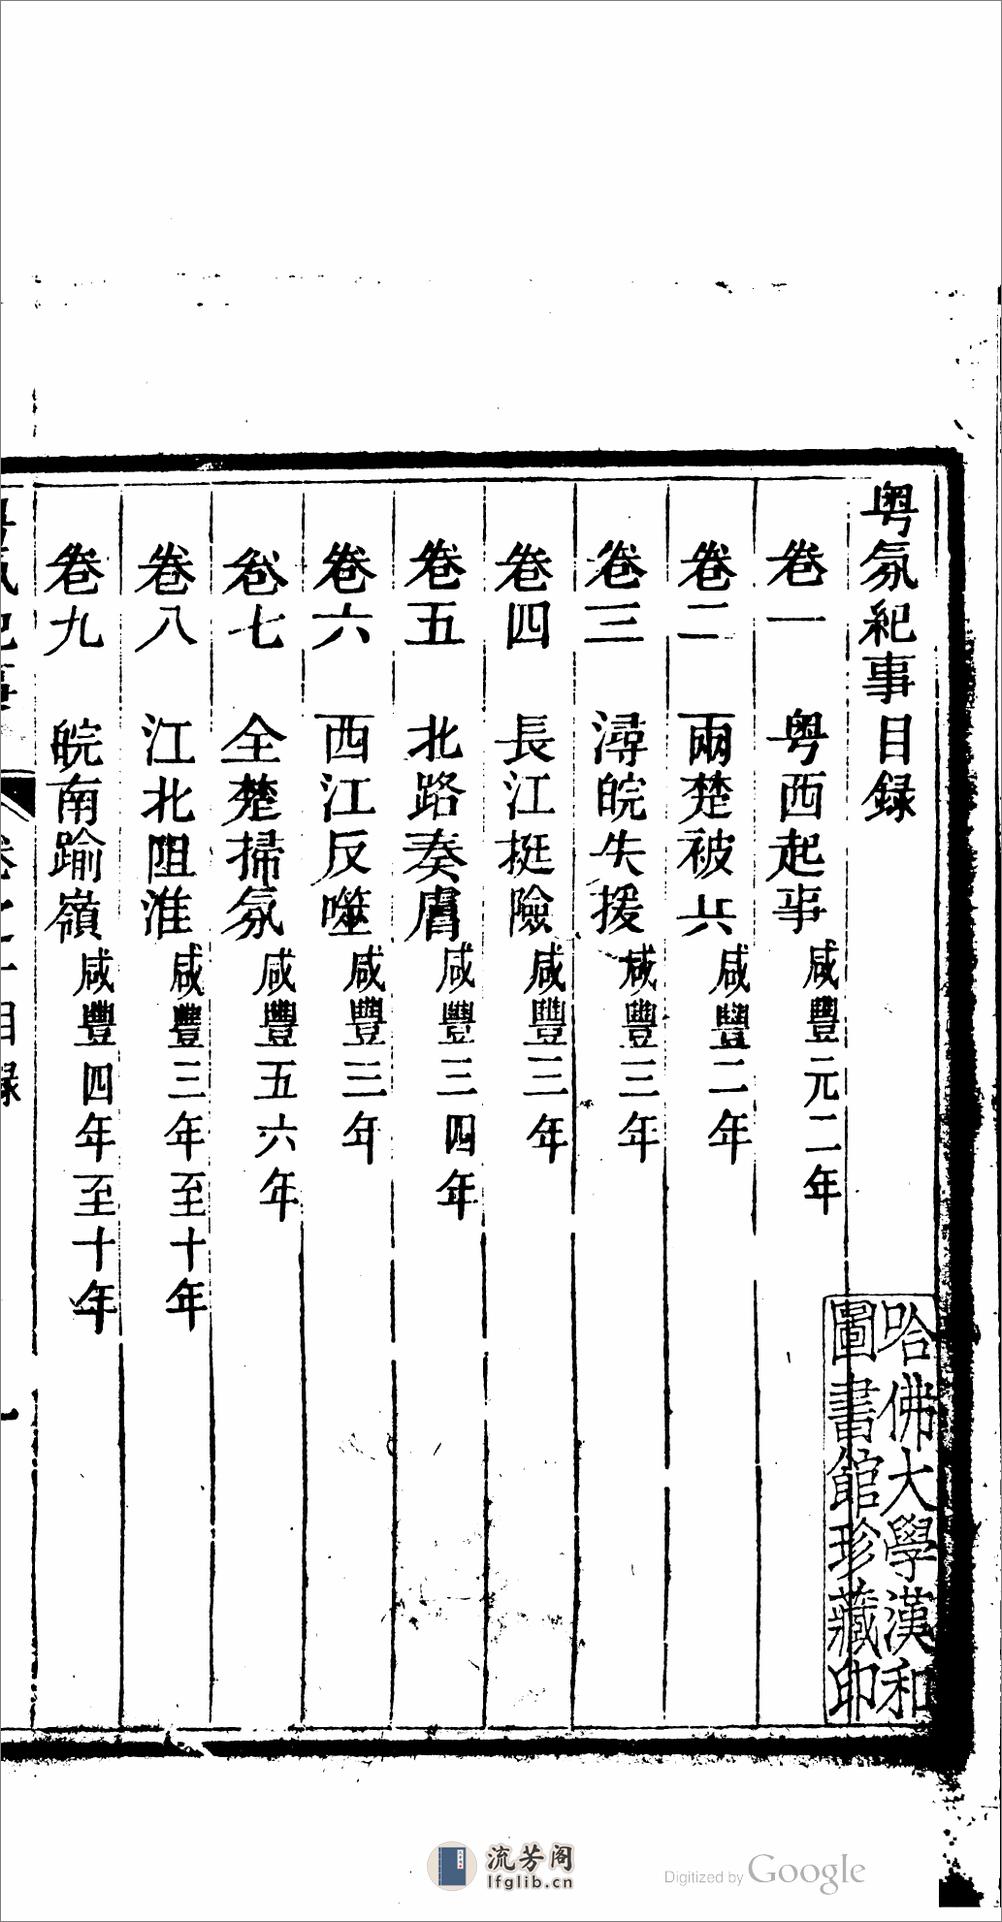 粤氛紀事目録
卷一　粤西起事咸豐元二年
卷二　兩楚被兵咸豐二年
卷三　潯皖失援咸豐三年
卷四　長江挺險咸豐三年
卷五　北路奏膚咸豐三四年
卷六　西江反噬咸豐三年
卷七　全楚掃氛咸豐五六年
卷八　江北阻淮咸豐三年至十年
卷九　皖南踰嶺咸豐四年至十年
哈佛大學漢和
圖書館珍藏印
流芳阁
lfglib.cn
Digitized by Google